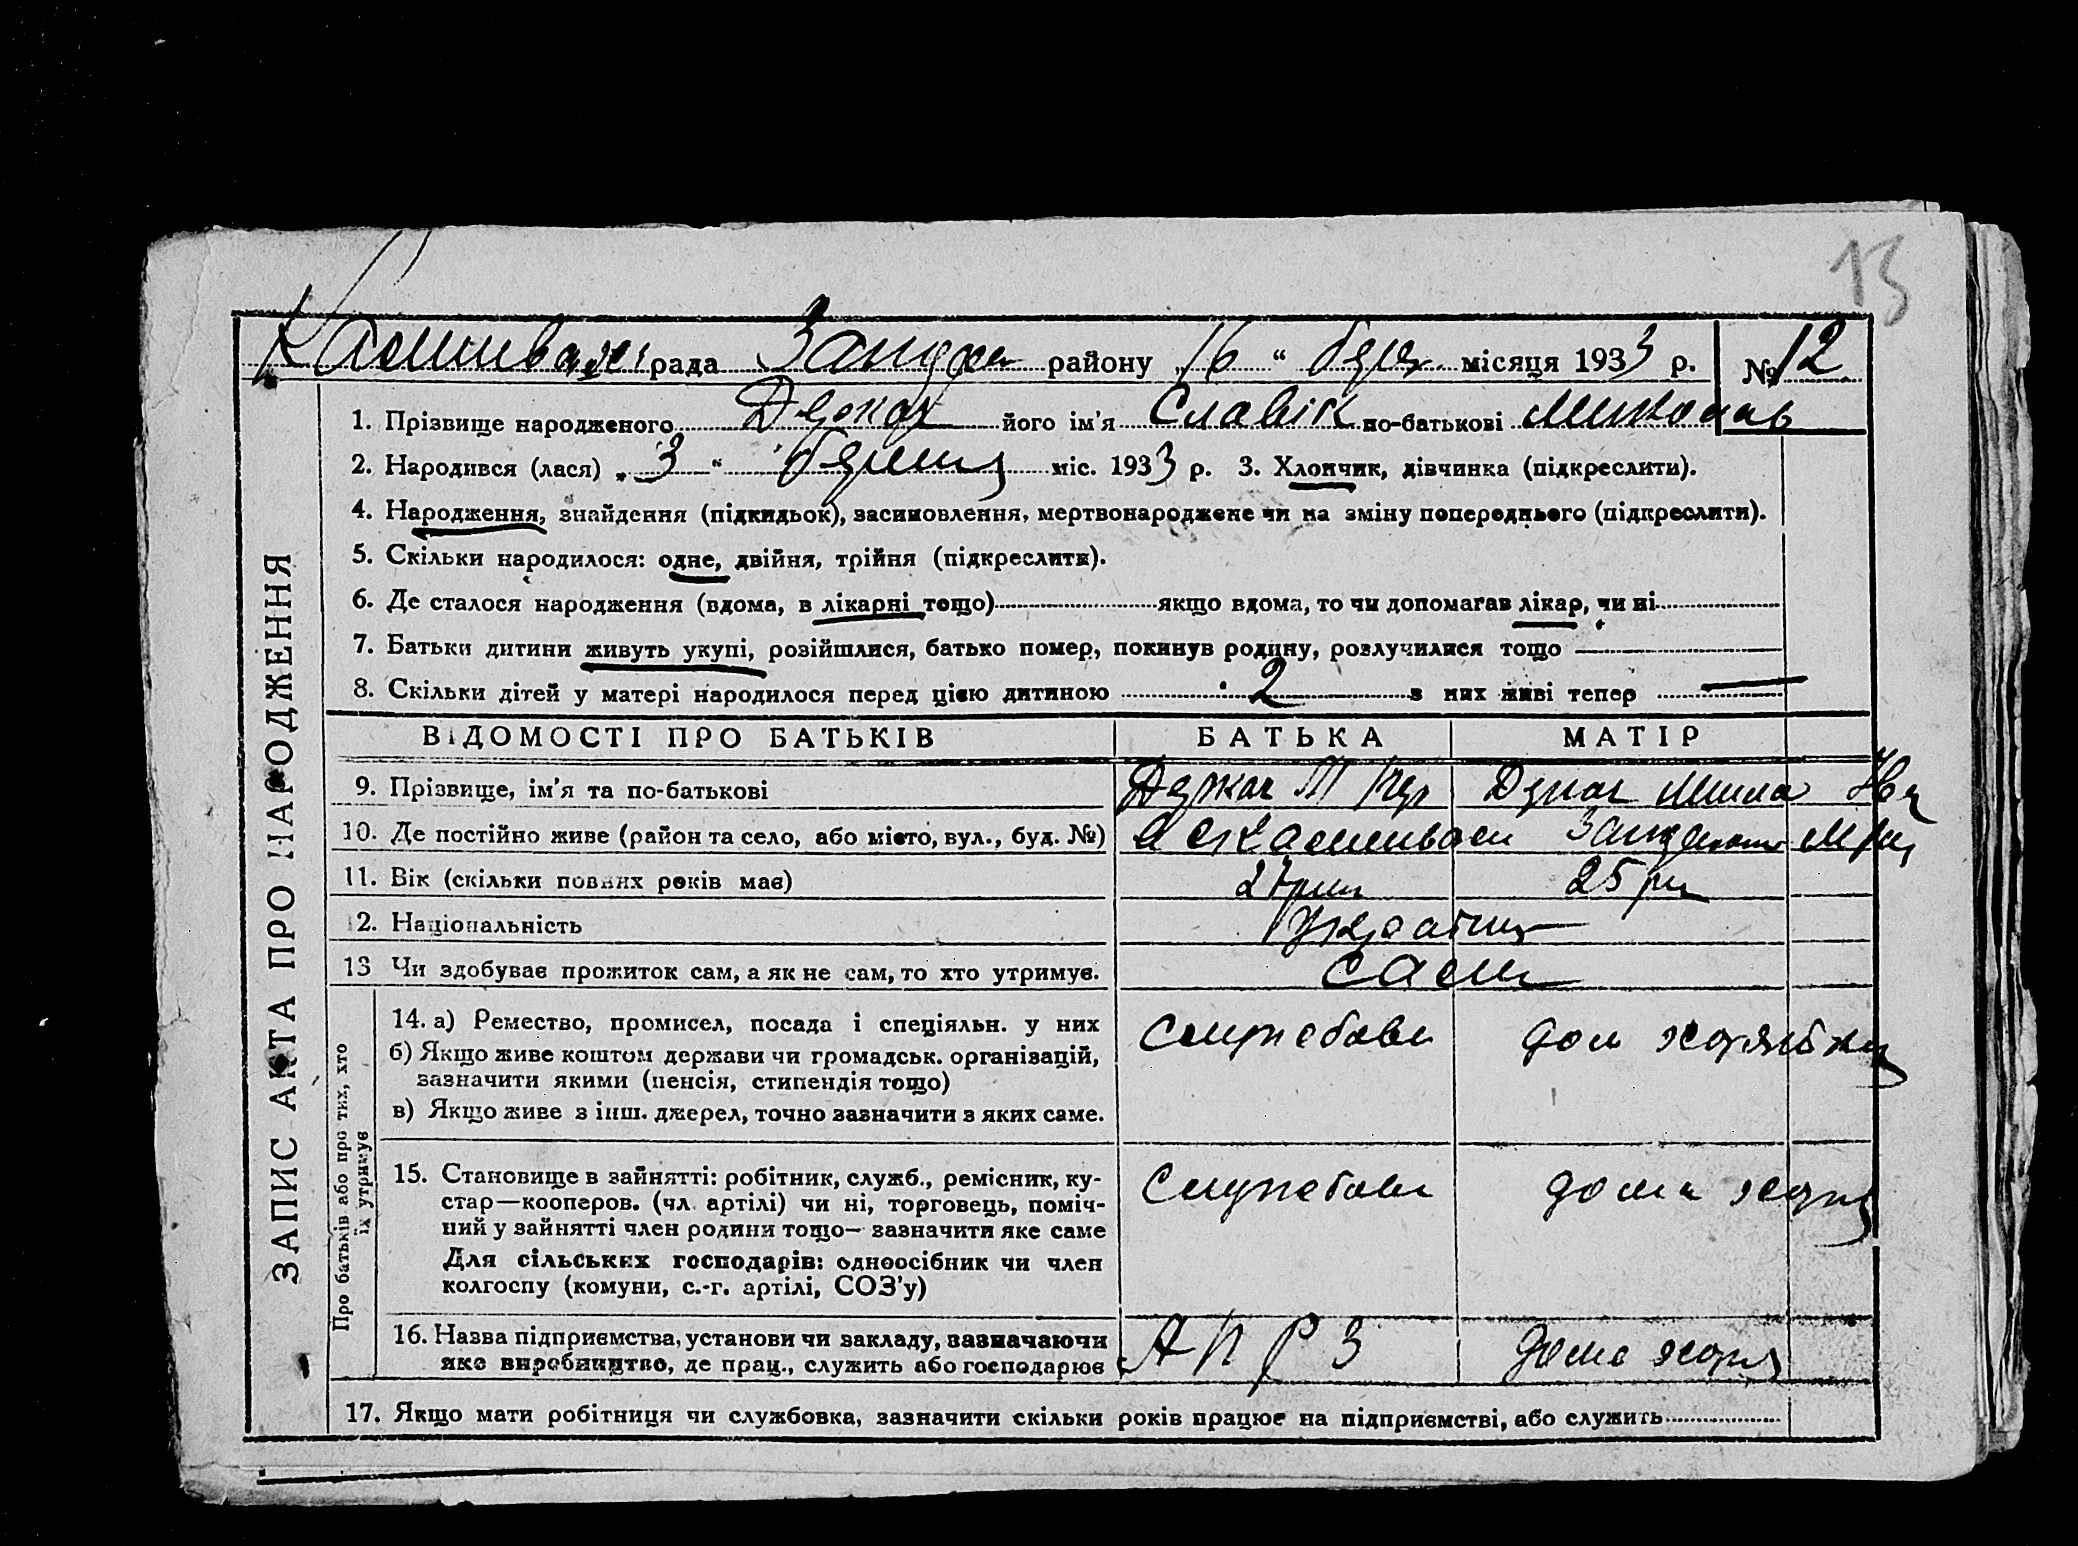 13
рада района 16 " місяця 1933 р. № 12
1. Прізвище народженого Деркач його ім'я Славік по-батькові Миколаїв
2. Народився (лася) „ 3 " березня міс. 1933 р. 3. Хлопчик, дівчинка (підкреслити).
4. Народження, знайдення (підкидьок), засиновлення, мертвонароджене чи на зміну попереднього (підкреслити).
5. Скільки народилося: одне, двійня, трійня (підкреслити).
6. Де сталося народження (вдома, в лікарні тощо) якщо вдома, то чи допомагав лікар, чи ні
7. Батьки дитини живуть укупі, розійшлися, батько помер, покинув родину, розлучилися тощо
8. Скільки дітей у матері народилося перед цією дитиною 2 з них живі тепер —
ЗАПИС АКТА ПРО НАРОДЖЕННЯ
ВІДОМОСТІ ПРО БАТЬКІВ БАТЬКА МАТІР
9. Прізвище, ім'я та по-батькові Деркач
10. Де постійно живе (район та село, або місто, вул., буд. №)
11. Вік (скільки повних років має) 27 25
12. Національність
13 Чи здобуває прожиток сам, а як не сам, то хто утримує. сами
Про батьків або про тих, хто
їх утримує
14. а) Ремество, промисел, посада і спеціяльн. у них
б) Якщо живе коштом держави чи громадськ. організацій,
зазначити якими (пенсія, стипендія тощо)
в) Якщо живе з інш. джерел, точно зазначити з яких саме.
15. Становище в зайнятті: робітник, служб., ремісник, ку-
стар—кооперов. (чл. артілі) чи ні, торговець, поміч-
ний у зайнятті член родини тощо— зазначити яке саме
Для сільських господарів: одноосібник чи член
колгоспу (комуни, с.-г. артілі, СОЗ'у)
16. Назва підприємства, установи чи закладу, зазначаючи
яке виробництво, де прац., служить або господарює
17. Якщо мати робітниця чи службовка, зазначити скільки років працює на підприємстві, або служить